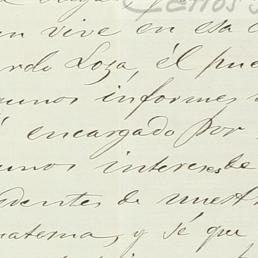 en vive en esa c
ardo Loza, él pue
gunos informes
encargado por
gunos intereses de
dentes de nuestr
materna, y sé que